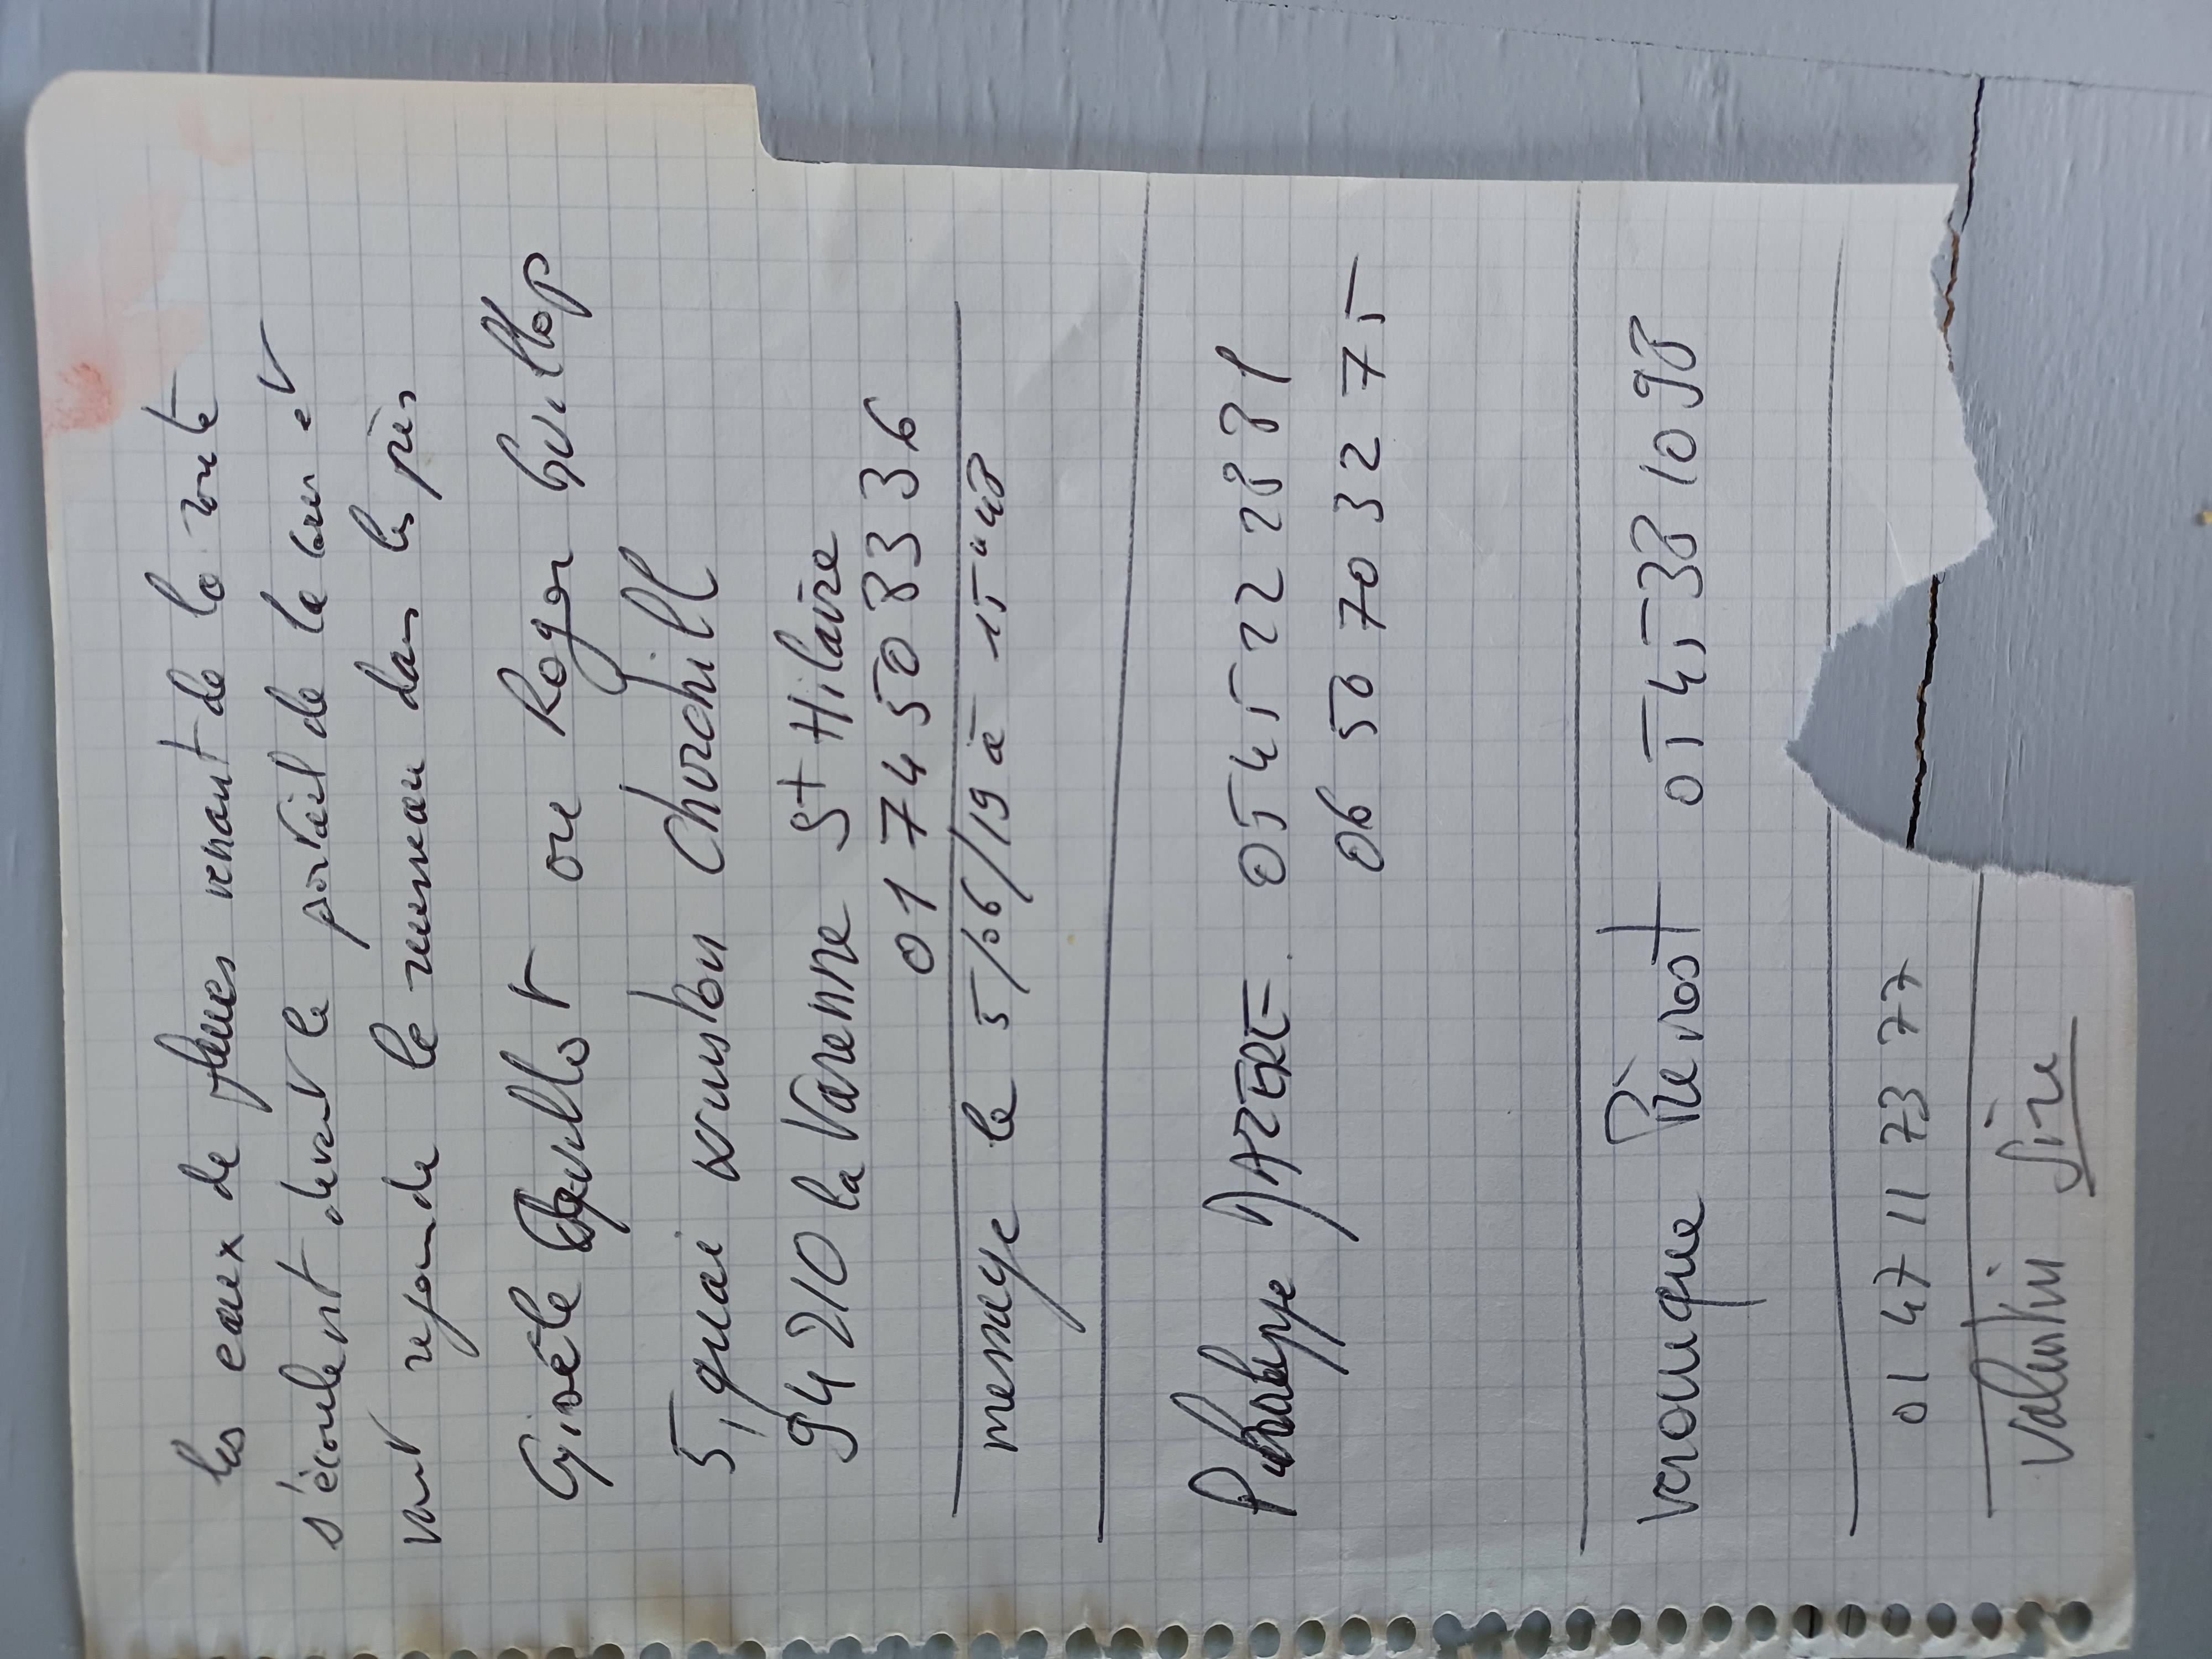 les eaux de pluies venant de la route
s'écoulent devant le portail de la cour et
vont rejoindre le ruisseau dans les près
Gisèle Guillot ou Roger Guillop
5, quai winston Churchill
94210 la Varenne St Hilaire
01 74 50 83 36
message le 5/06/19 à 15"40
Philippe 05 45 22 28 81
06 50 70 32 75
Veronique Pinost 05 45 38 10 98
01 47 11 73 77
Valentin Sire